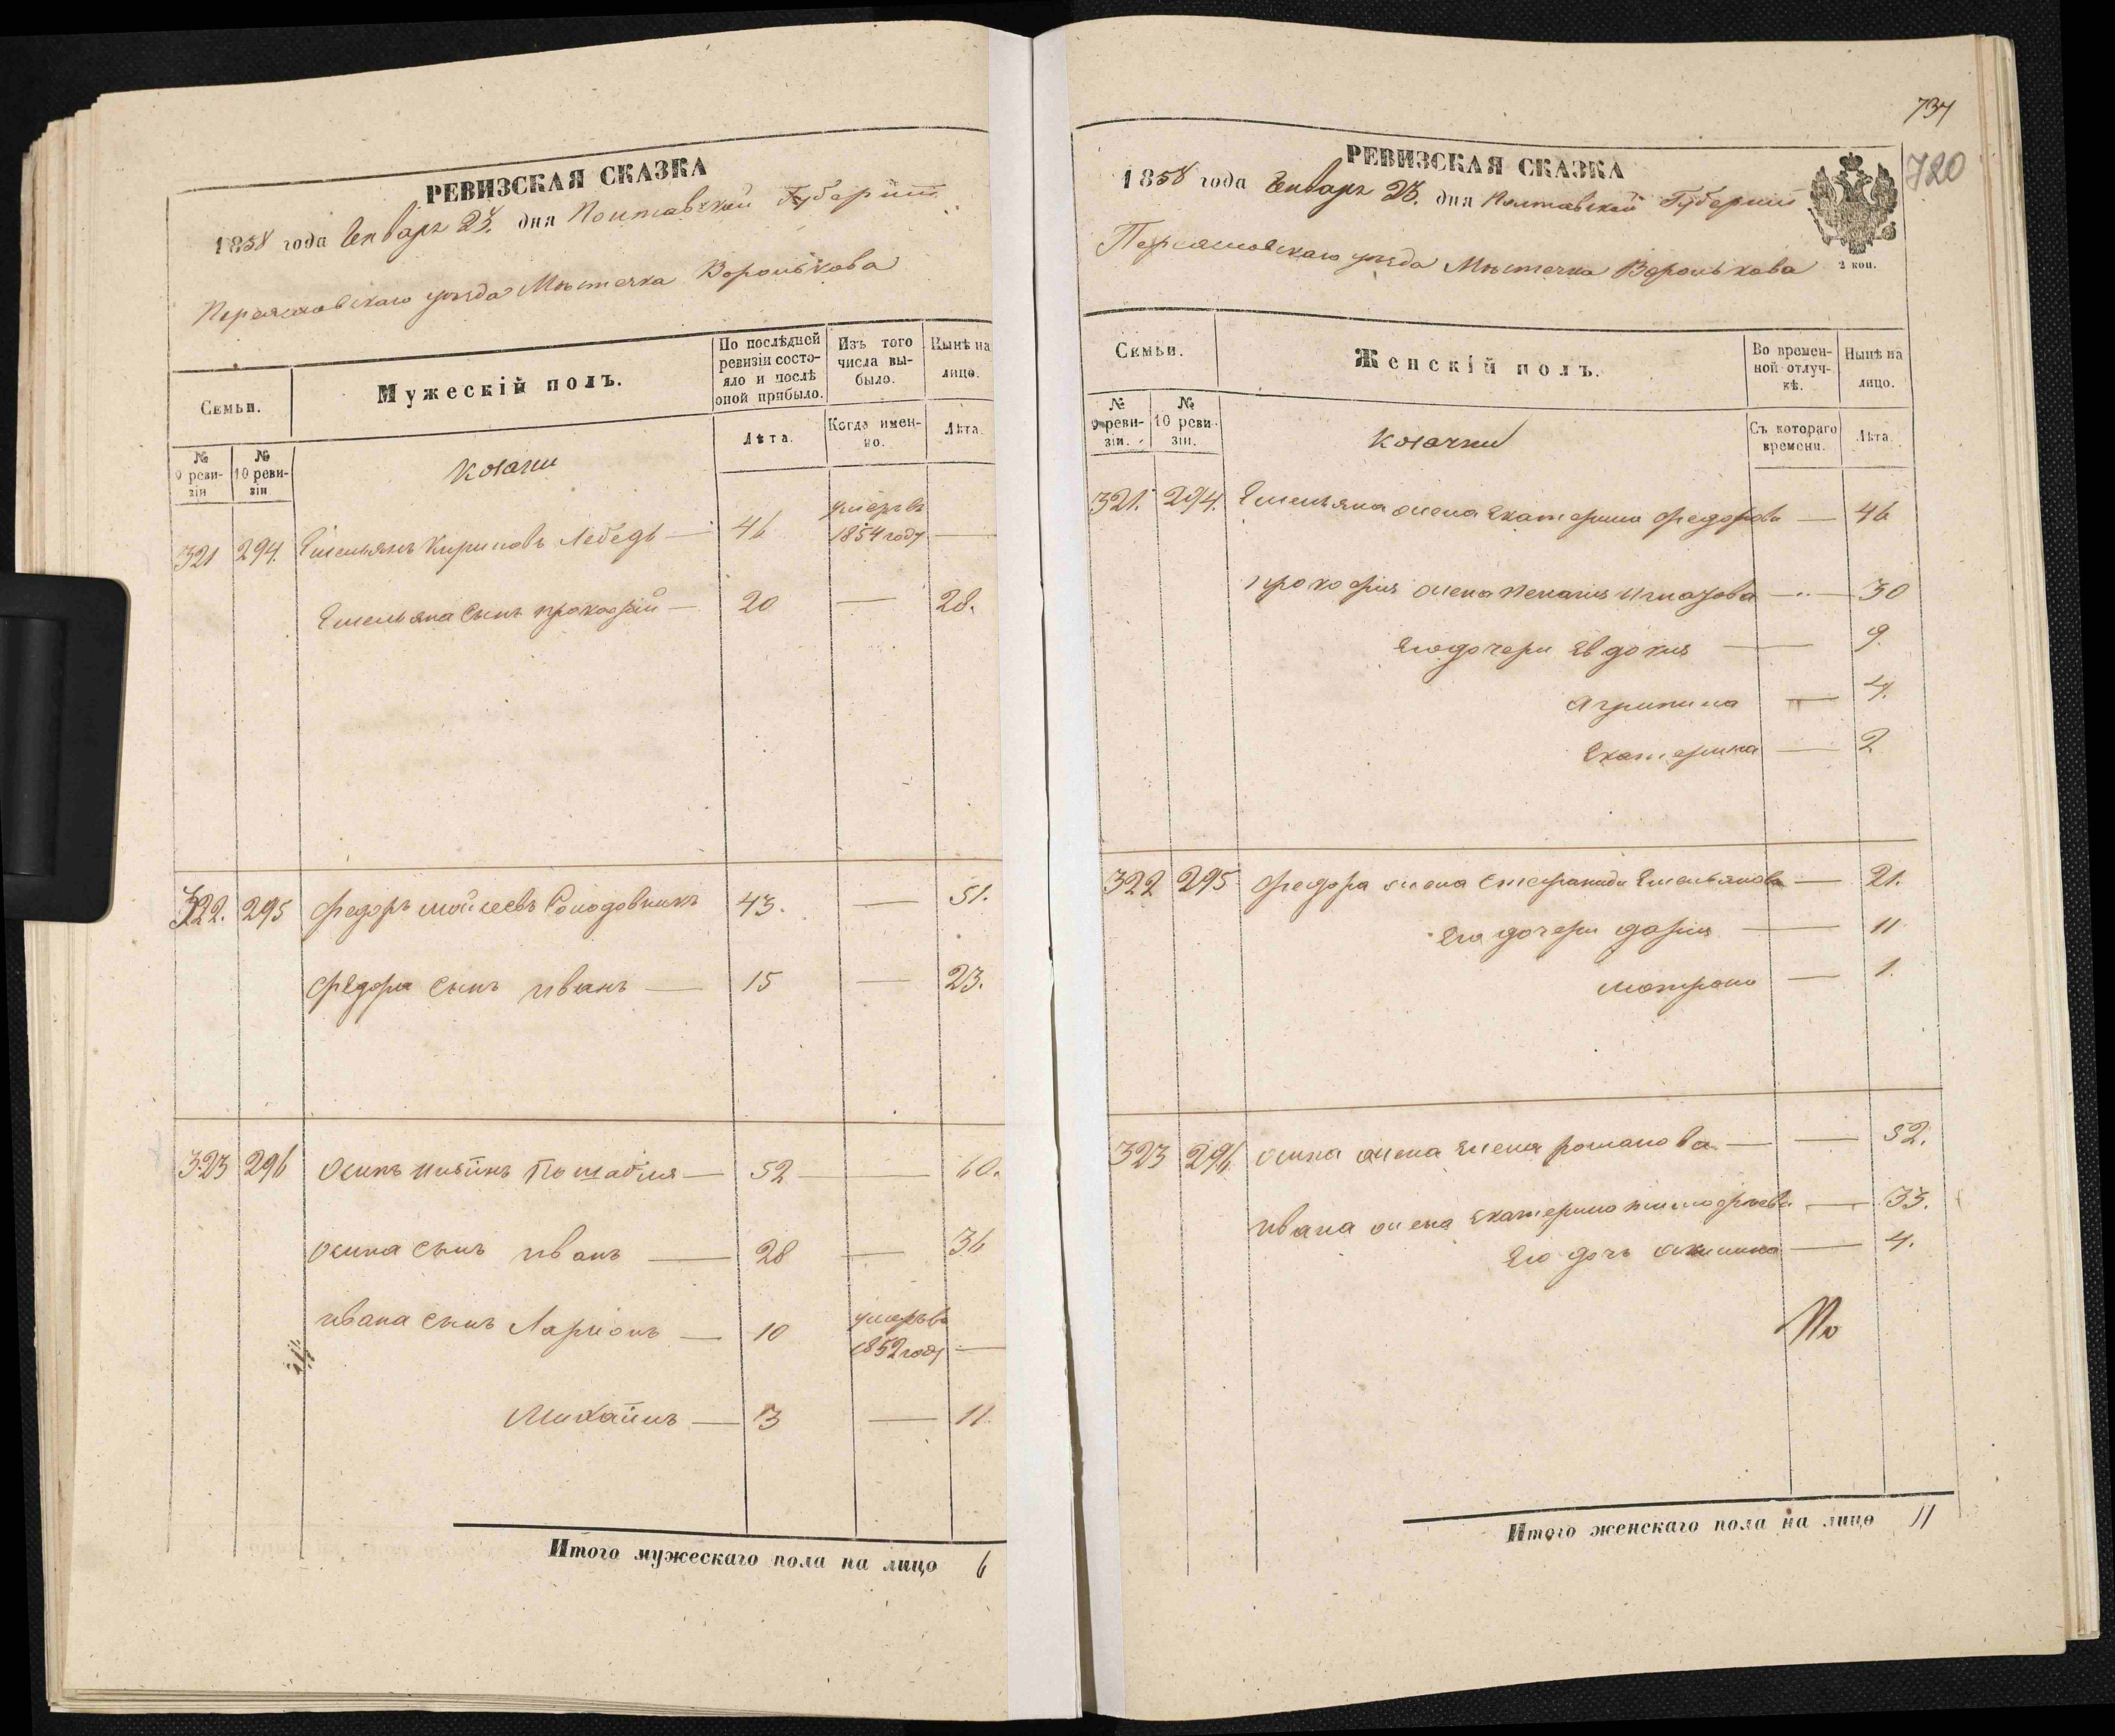 РЕВИЗСКАЯ СКАЗКА
1858 года Генваря 23. дня Полтавской Губерніи
Переяславскаго уезда Мѣстечка Воронькова
Семьи.
Мужескій полъ.
По послѣдней ревизіи состояло и послѣ оной прибыло.
Изъ того числа выбыло.
Нынѣ на лицо.
№ 9 ревизіи
№ 10 ревизіи
Козаки
Лѣта.
Когда именно.
Лѣта.
321 294. Емельянъ Кириловъ Лебедь — 46 умеръ въ 1854 году —
Емельяна сынъ прокофій — 20 — 28.
322. 295 Федоръ Мойсеевъ Солодовникъ 43. — 51.
Федора сынъ иванъ — 15 — 23.
323 296 Осипъ — 52 — 60.
Осипа сынъ иванъ — 28 — 36
ивана сынъ Ларионъ — 10 умеръ въ 1852 году —
Михайилъ — 3 — 11.
Итого мужескаго пола на лицо 6
737
720
РЕВИЗСКАЯ СКАЗКА
1858 года Генваря 23. дня Полтавской Губерніи
Переяславскаго уезда Мѣстечка Воронькова
2 коп.
Семьи.
Женскій полъ.
Во временной отлучкѣ.
Нынѣ на лицо.
№ 9 ревизіи.
№ 10 ревизіи.
Козачки
Съ котораго времени.
Лѣта.
321. 294. Емельяна жена Екатерина Федорова — 46
прокофия жена Пелагия — 30
Его дочери Евдокия — 9.
Агрипина — 4.
Екатерина — 2
322 295 Федора жена Стефанида Емельянова — 21.
Его дочери дария — 11
Мотрона — 1.
323 296. Осипа жена Елена романова — 52.
ивана жена Екатерина тимофѣева — 33.
Его дочь — 4.
По
Итого женскаго пола на лицо 11